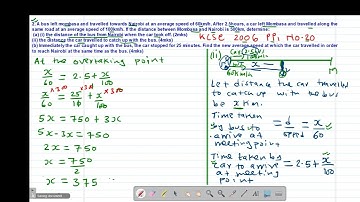 2. A bus left mombasa and travelled towards Nairobi at an average speed of 60km/h. After 2.5hours, a car left Mombasa and travelled along
the same road at an average speed of 100km/h. If the distance between Mombasa and Nairobi is 500km, determine:
(a) (i) the distance of the bus from Nairobi when the car took off. (2mks)
KCSE 2006 PP1 No. 20
(ii) the distance the car travelled to catch up with the bus. (4mks)
(b) Immediately the car caught up with the bus, the car stopped for 25 minutes. Find the new average speed at which the car travelled in order
to reach Nairobi at the same time as the bus. (4mks)
At the overtaking point
x/60 = 2.5 + x/100
x/60 ×300 = 25/10 ×300 + x/100 ×300
5x = 750 + 3x
5x - 3x = 750
2x = 750
x = 750/2
x = 375
(ii)
x
60km/h
M
Let distance the car travelled
to catch up with the bus
be x Km.
Time taken
by bus to
arrive at
meeting point
= d/speed = x/60
Time taken by
car to arrive
at meeting
point
= 2.5 + x/100